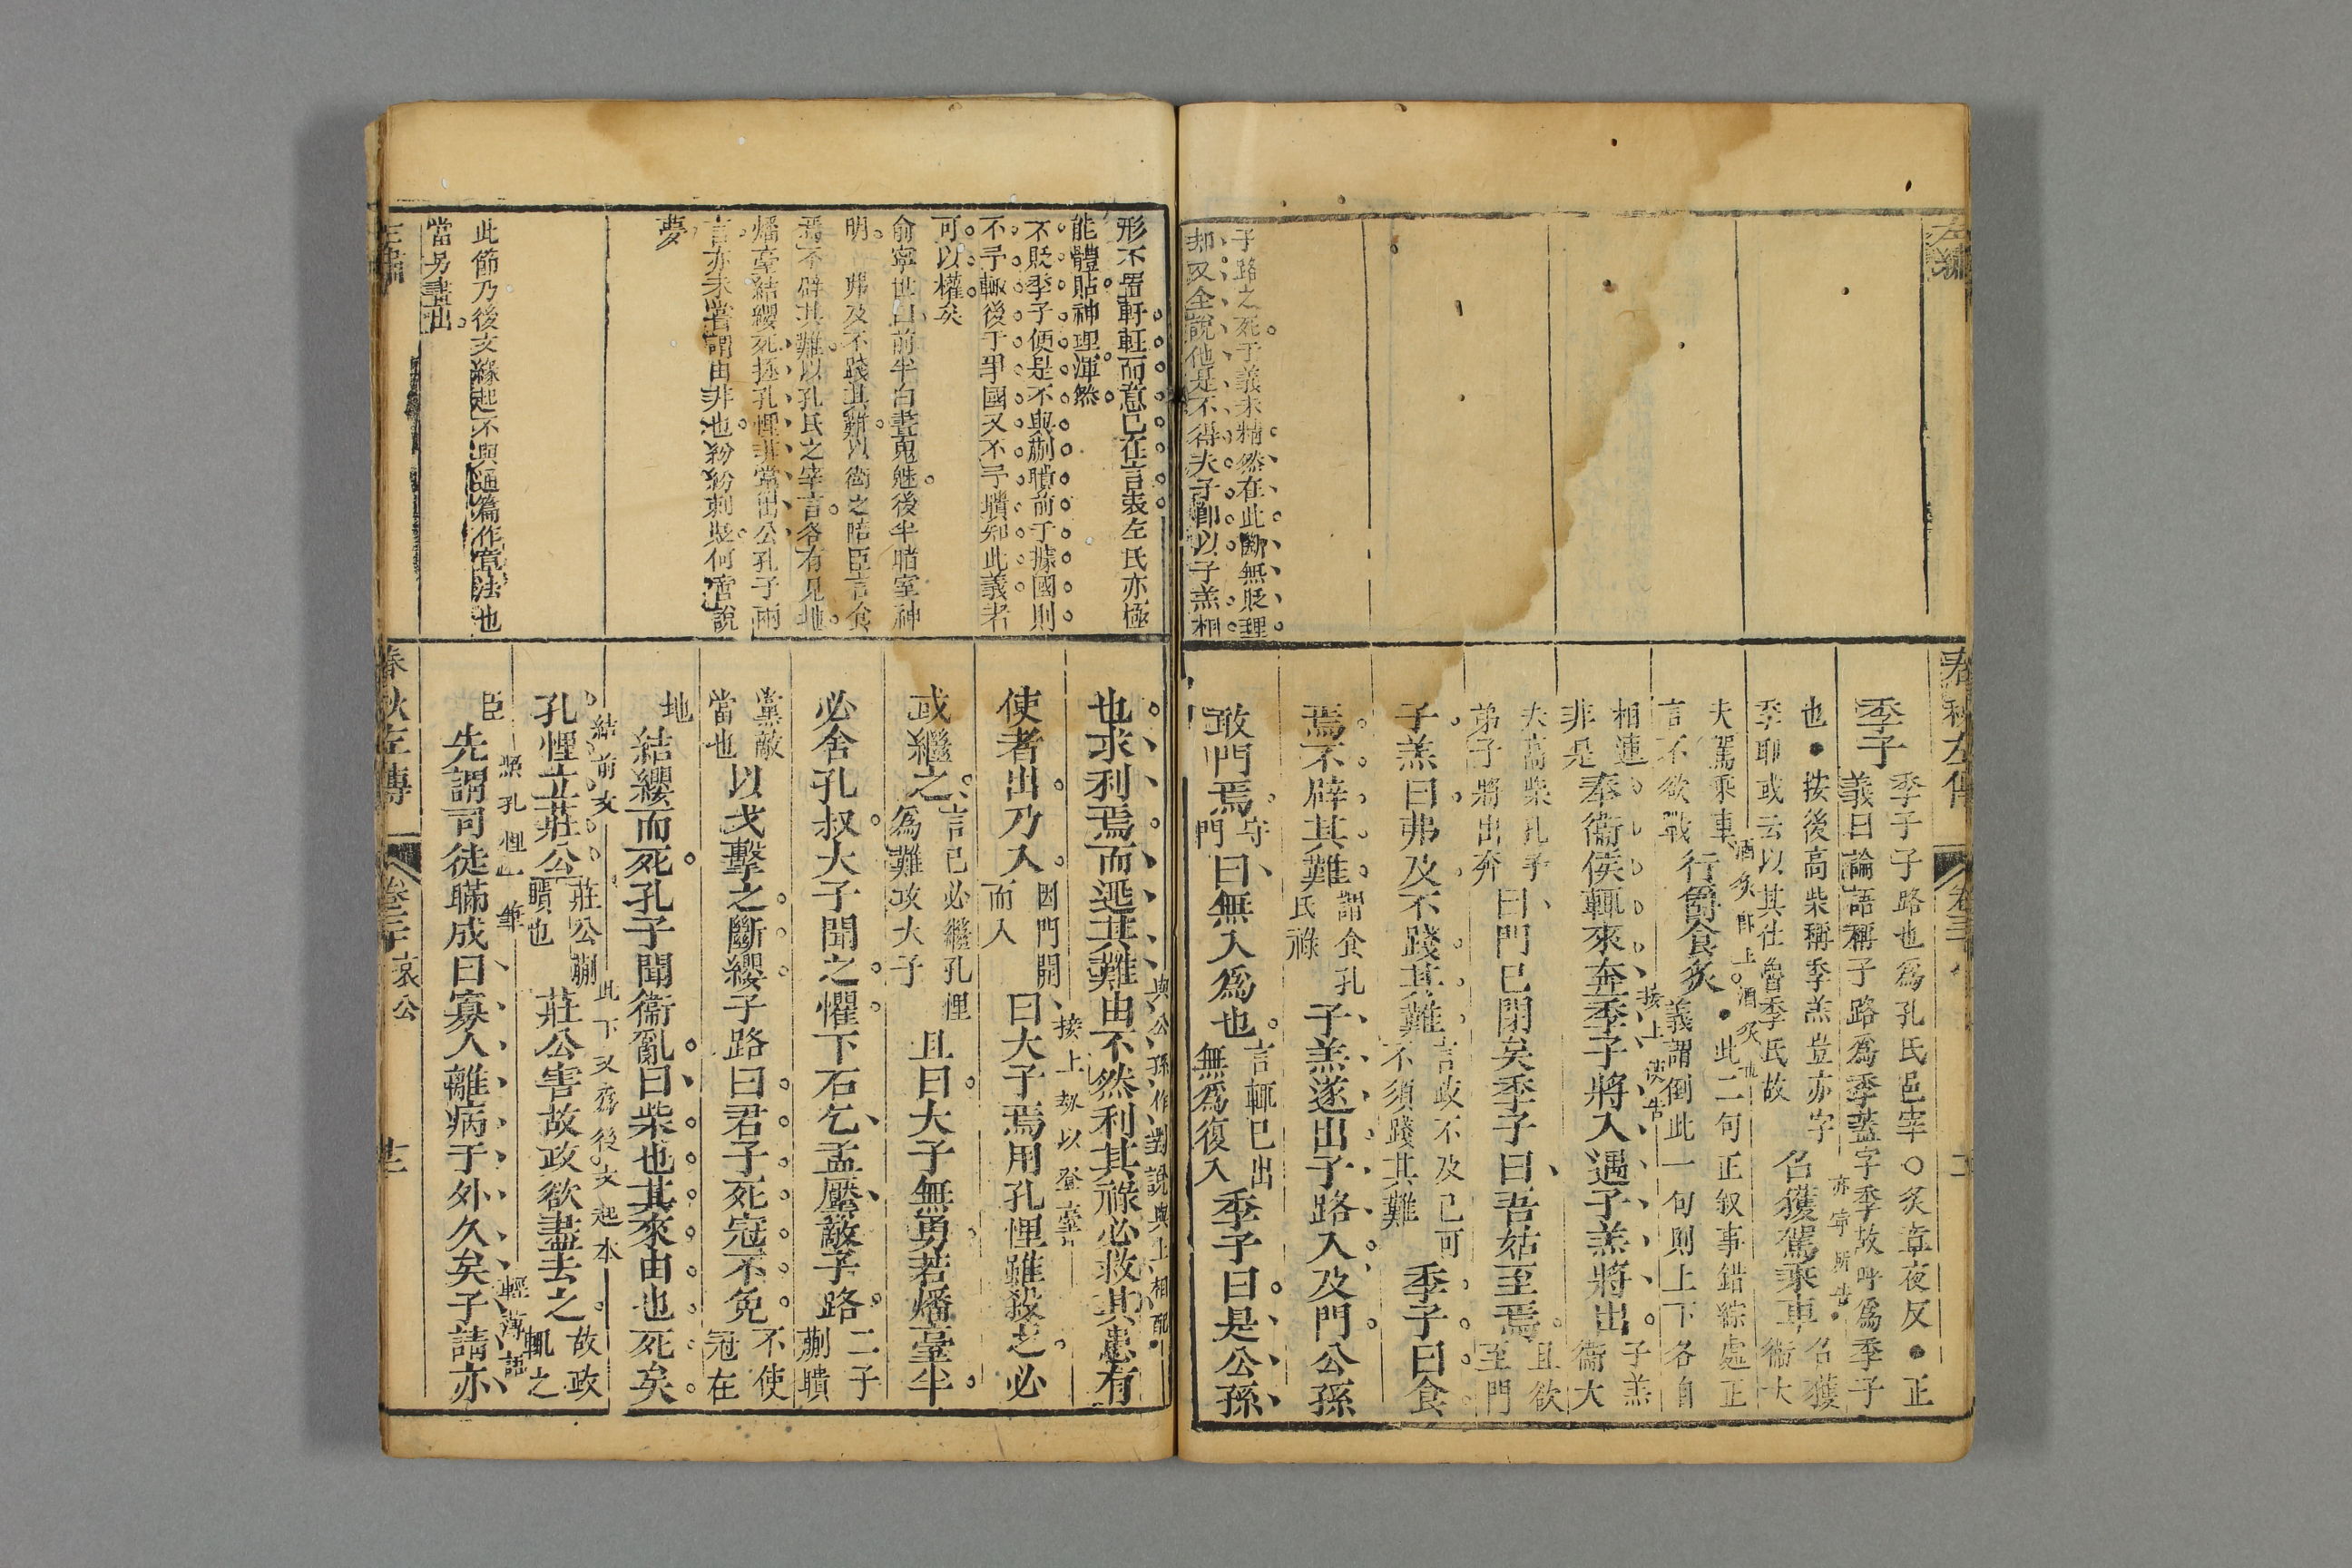 左繡
子路之死于義未精然在此斷無貶理
却又全說他是不得夫子即以子羔相
春秋左傳
卷三十
季子
季子子路也爲孔氏邑宰○炙章夜反●正
義曰論語稱子路爲季蓋字季故呼爲季子
也●按後高柴稱季羔豈亦字
季耶或云以其仕魯季氏故
亦甯所告
召獲駕乘車
召獲
衞大
夫駕乘車
言不欲戰
酒炙即上酒炙也
行爵食炙
●此二句正叙事錯綜處正
義謂倒此一句則上下各自
相連
非是
奉衞侯輒來奔季子將入遇子羔將出
按上使告
子羔
衞大
夫高柴孔子
弟子將出奔
曰門已閉矣季子曰吾姑至焉
且欲
至門
子羔曰弗及不踐其難
言政不及己可
不須踐其難
季子曰食
焉不辟其難
謂食孔
氏祿
子羔遂出子路入及門公孫
敢門焉
守
門
曰無入爲也
言輒已出
無爲復入
季子曰是公孫
形不置軒輊而意已在言表左氏亦極
能體貼神理渾然
不貶季子便是不與蒯聵前于據國則
不予輒後于爭國又不予聵知此義者
可以權矣
俞寧世曰前半白晝鬼魅後半暗室神
明 弗及不踐其難以衞之臣言食
焉不辟其難以孔氏之宰言各有見地
燔臺結纓死拯孔悝非當出公孔子兩
言亦未嘗謂由非也紛紛刺貶何啻說
夢
此節乃後文緣起不與通篇作章法也
當另畫出
也求利焉而逃其難由不然利其祿必救其患有
與公孫作對說與上相配
使者出乃入
因門開
而入
曰大子焉用孔悝雖殺之必
按上劫以登臺
或繼之
言己必繼孔悝
爲難攻大子
且曰大子無勇若燔臺半
必舍孔叔大子聞之懼下石乞孟黶敵子路
二子
蒯聵
黨敵
當也
以戈擊之斷纓子路曰君子死冠不免
不使
冠在
地
結纓而死孔子聞衞亂曰柴也其來由也死矣
結前文
此下又爲後文起本
孔悝立莊公
莊公蒯
聵也
莊公害故政欲盡去之
故政
輒之
臣
照孔悝一筆
輕薄語
先謂司徒瞞成曰寡人離病于外久矣子請亦
左繡
春秋左傳
卷三十
哀公